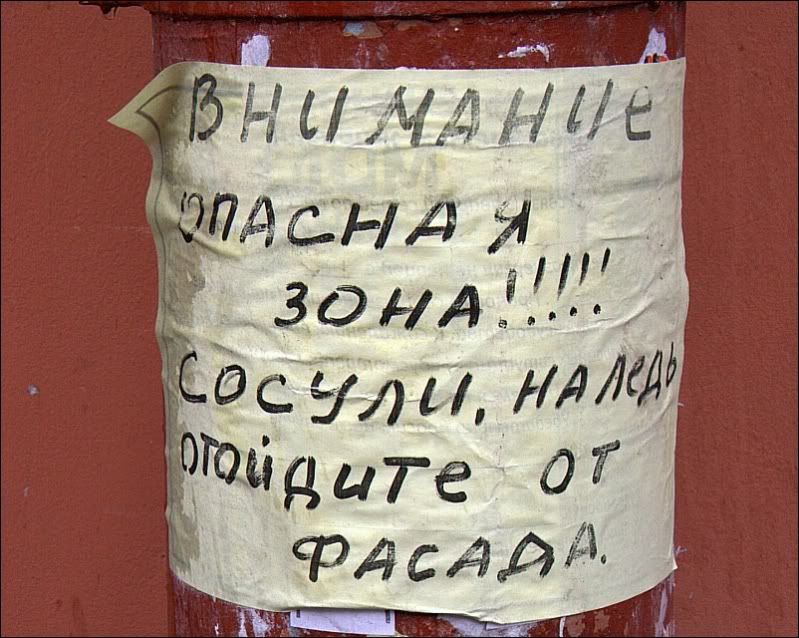 ВНИМАНИЕ
ОПАСНАЯ
ЗОНА!!!!!
СОСУЛИ, НАЛЕДЬ
ОТОЙДИТЕ ОТ
ФАСАДА.